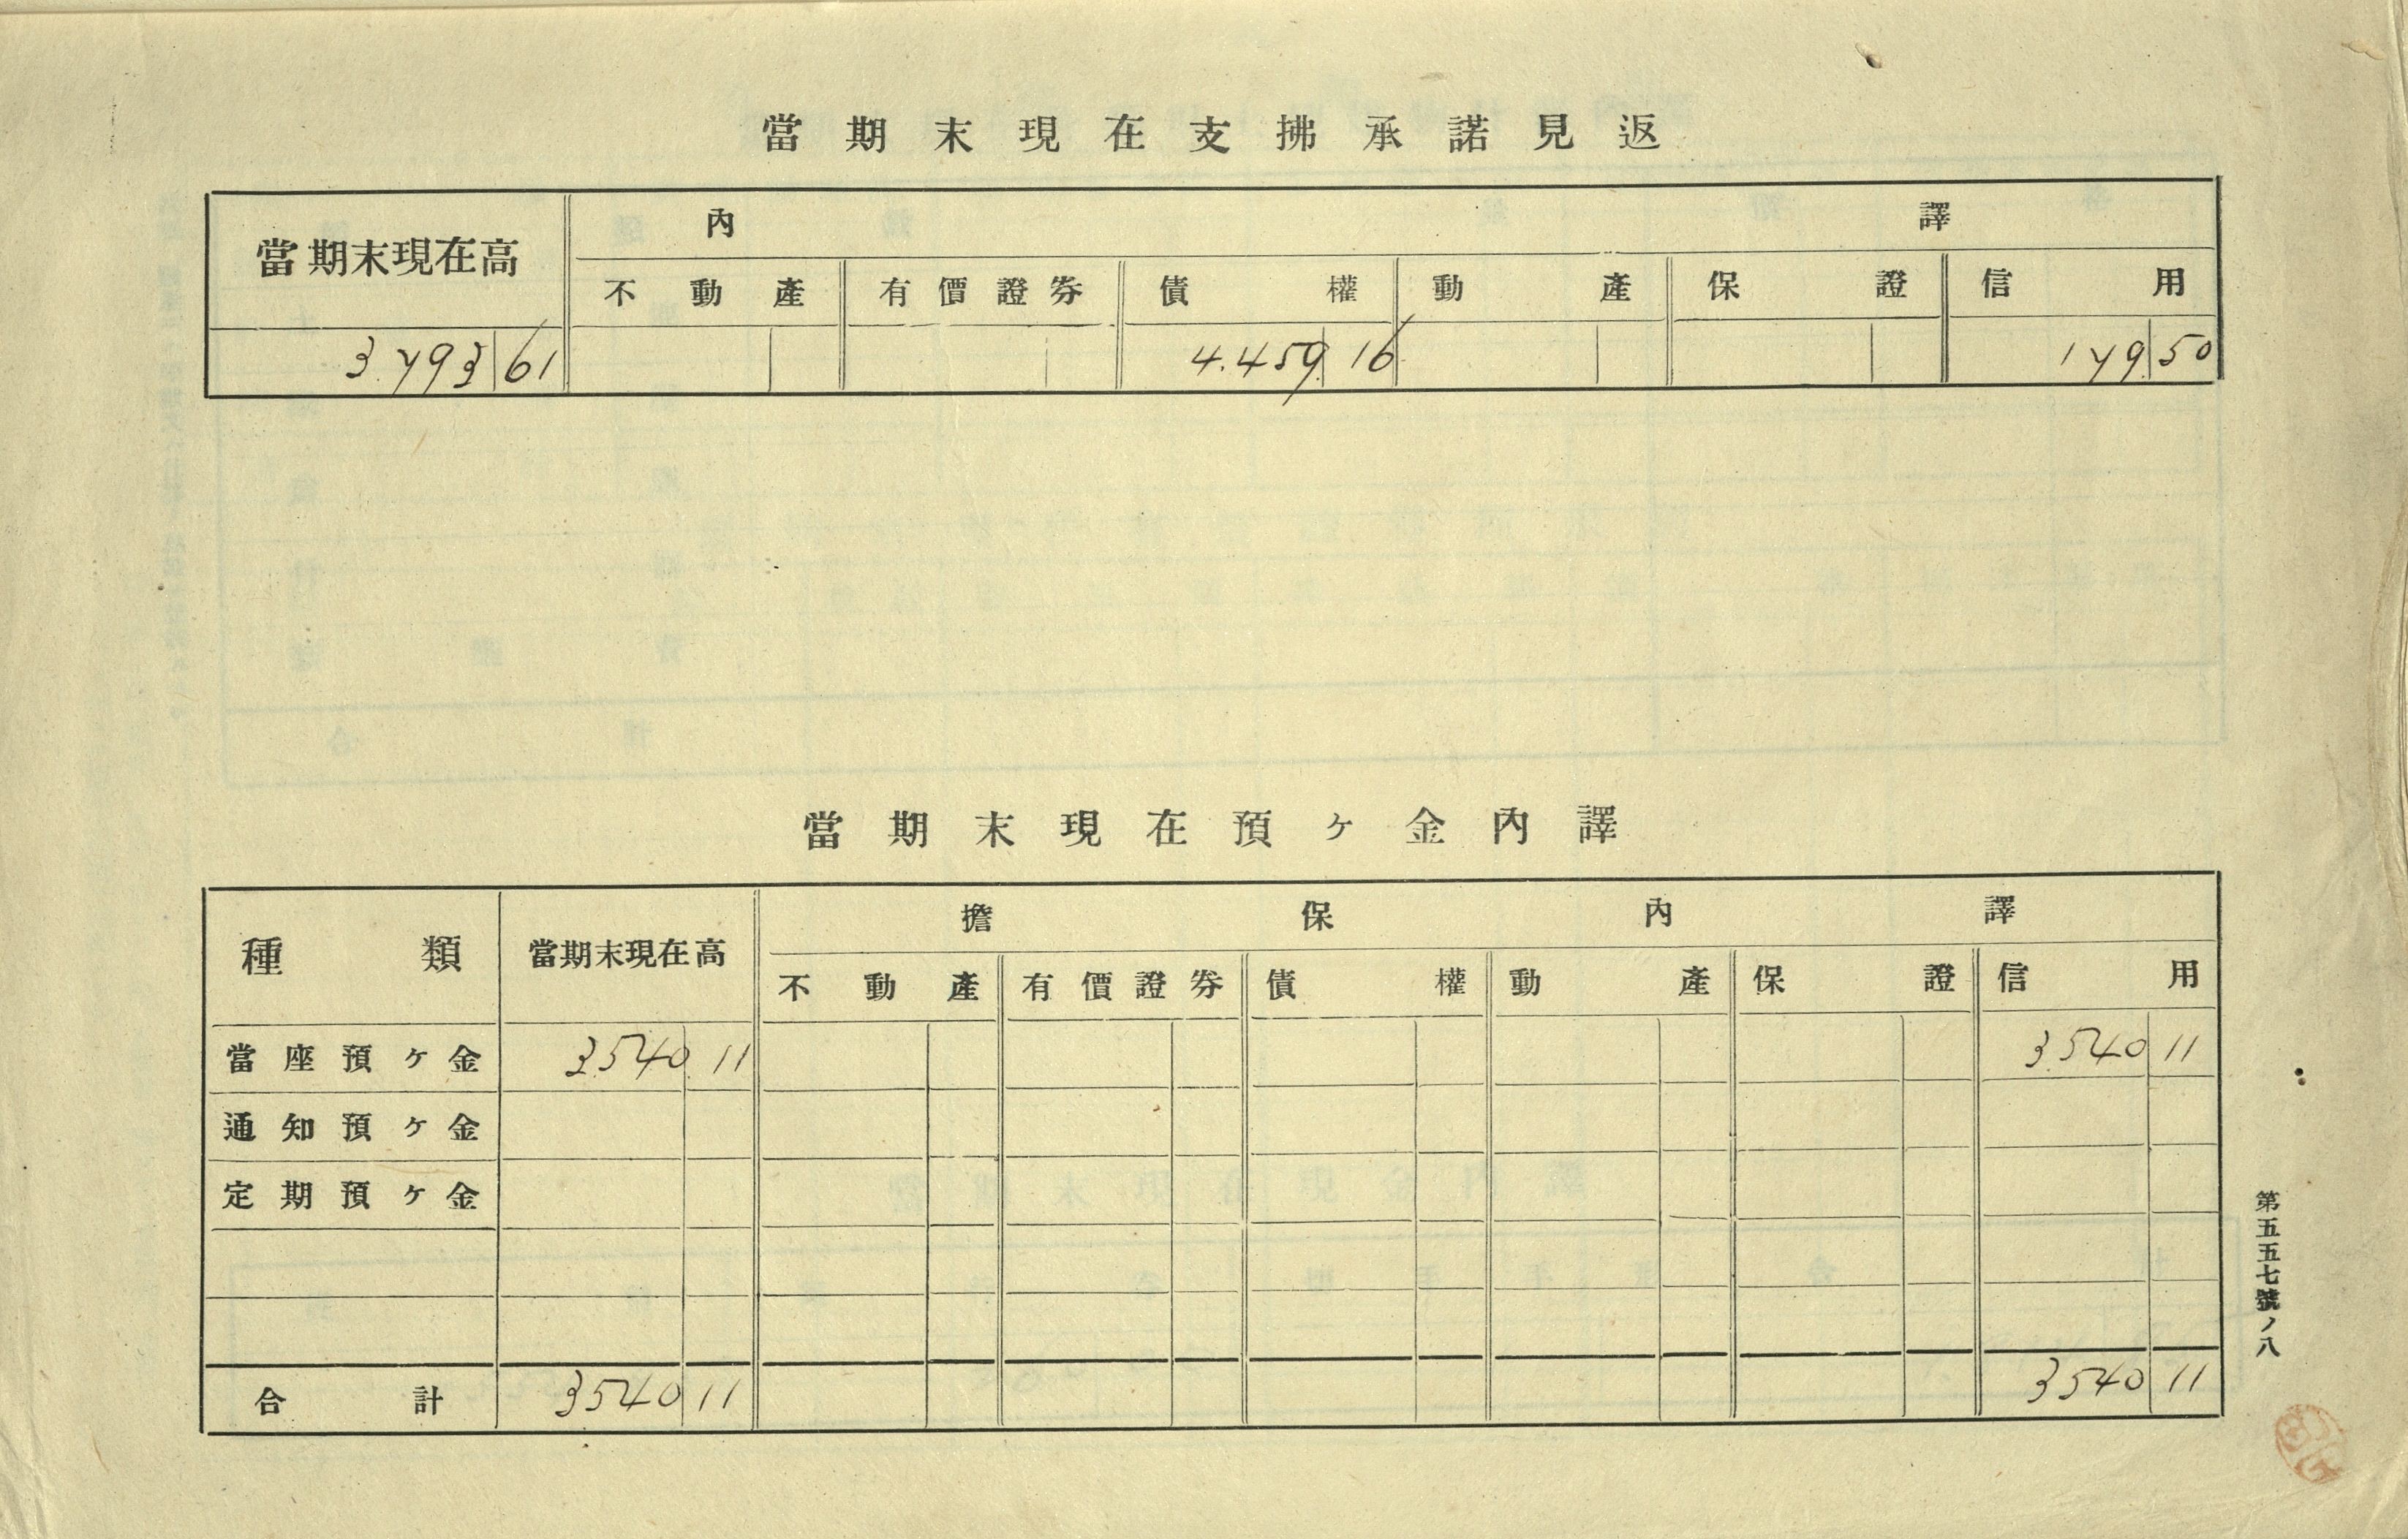 當期末現在支拂承諾見返
當期末現在高 內 譯
不動產 有價證券 債權 動產 保證 信用
3.793 61 4.459 16 179 50
當期末現在預ヶ金內譯
種類 當期末現在高 擔保內譯
不動產 有價證券 債權 動產 保證 信用
當座預ヶ金 3.540 11 3.540 11
通知預ヶ金
定期預ヶ金
合計 3540 11 3540 11
第五五七號ノ八